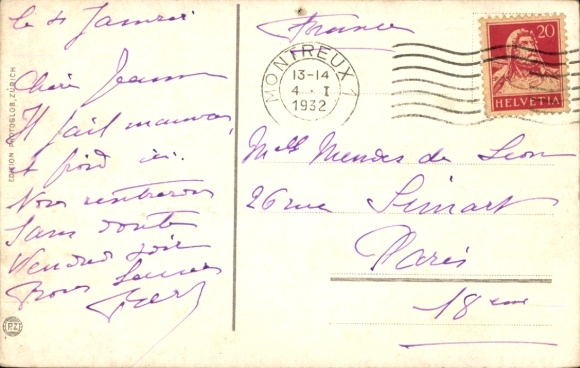 le 4 Janvier
Chère Jeanne
Il fait mauvais
et froid ici.
Nous rentrerons
sans doute
Vendredi soir
Bons
France
MONTREUX 1
13-14
4. I
1932
20
HELVETIA
Mlle Mendes de Leon
26 rue Simart
Paris
18 eme
EDITION PHOTOGLOB, ZÜRICH
PZ